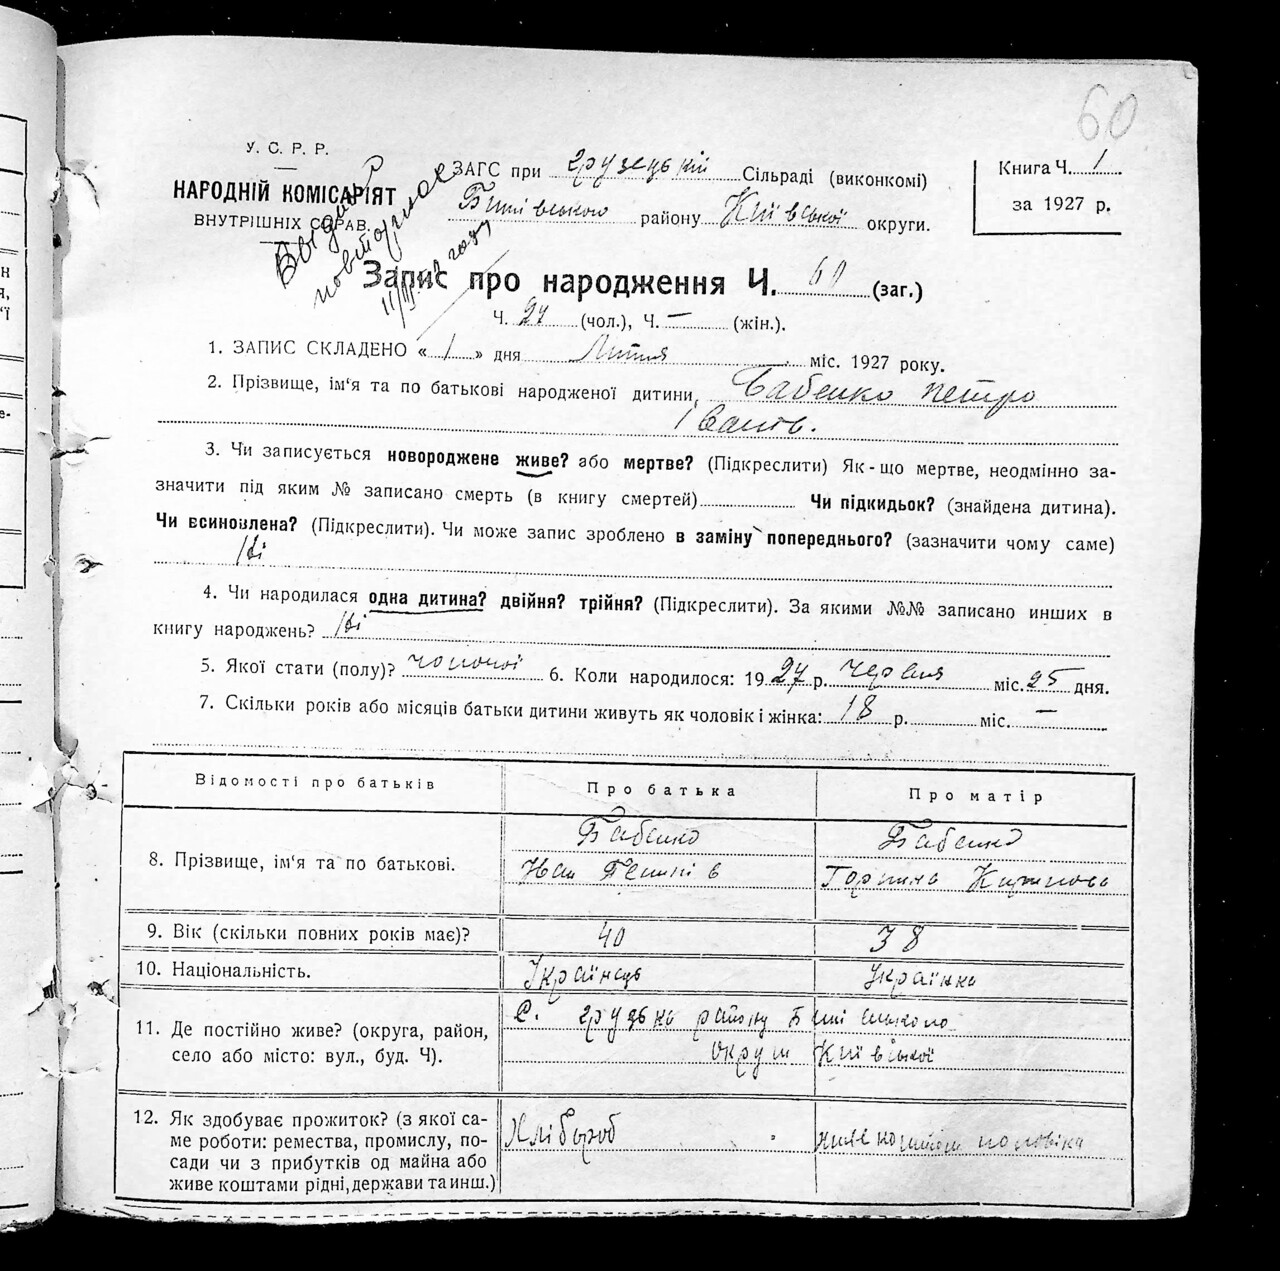 60
У. С. Р. Р.
НАРОДНІЙ КОМІСАРІЯТ
ВНУТРІШНІХ СПРАВ.
Выдано
повторное
ЗАГС при Грузецькій Сільраді (виконкомі)
Бишівського району Київської округи.
Книга Ч. 1
за 1927 р.
Запис про народження Ч. 60 (заг.)
Ч. 27 (чол.), Ч. — (жін.).
1. ЗАПИС СКЛАДЕНО « 1 » дня Липня міс. 1927 року.
2. Прізвище, ім'я та по батькові народженої дитини, Бабенко Петро
Іванів.
3. Чи записується новороджене живе? або мертве? (Підкреслити) Як-що мертве, неодмінно за-
значити під яким № записано смерть (в книгу смертей) Чи підкидьок? (знайдена дитина).
Чи всиновлена? (Підкреслити). Чи може запис зроблено в заміну попереднього? (зазначити чому саме)
Ні
4. Чи народилася одна дитина? двійня? трійня? (Підкреслити). За якими №№ записано инших в
книгу народжень? Ні
5. Якої стати (полу)? чоловічої 6. Коли народилося: 1927 р. Червня міс. 25 дня.
7. Скільки років або місяців батьки дитини живуть як чоловік і жінка: 18 р. міс. —
Відомості про батьків Про батька Про матір
8. Прізвище, ім'я та по батькові. Бабенко Бабенко
Іван Горпина
9. Вік (скільки повних років має)? 40 38
10. Національність. Українець Українка
11. Де постійно живе? (округа, район, С. Грузька району Бишівського
село або місто: вул., буд. Ч). округи Київської
12. Як здобуває прожиток? (з якої са- Хлібороб
ме роботи: ремества, промислу, по-
сади чи з прибутків од майна або
живе коштами рідні, держави та инш.)